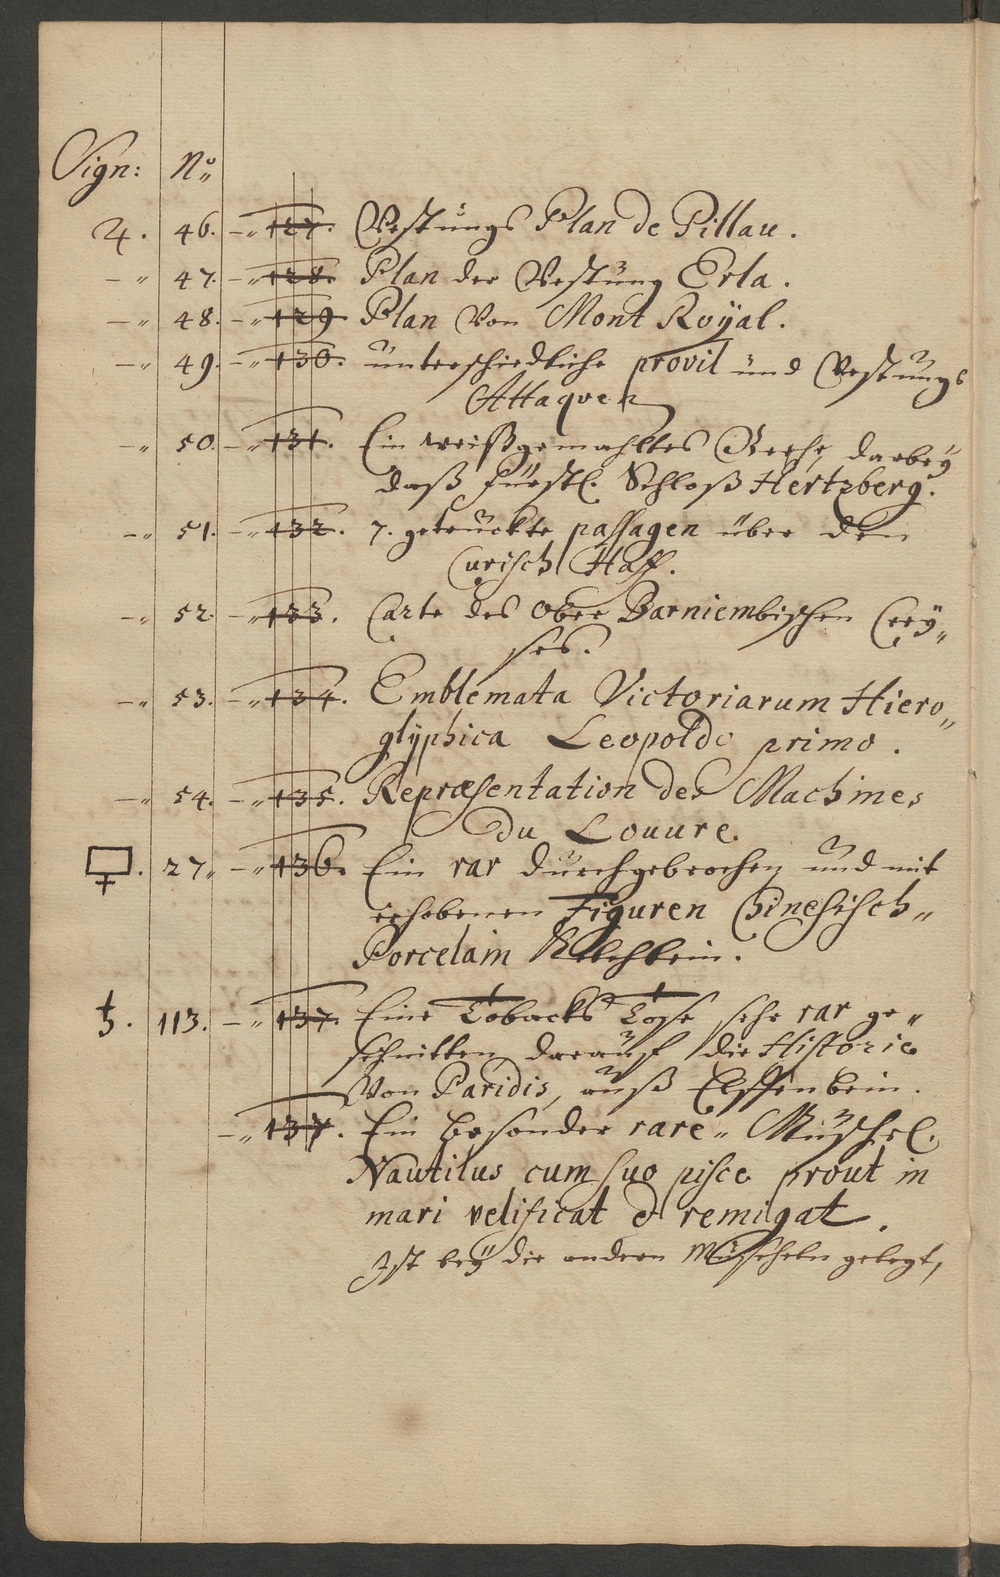 Sign: No:
♃. 46. -" 127. Vestungs Plan de Pillau.
-" 47. -" 128. Plan der Vestung Erla.
-" 48. -" 129 Plan Von Mont Royal.
-" 49. -" 130. unterschiedliche provil und Vestungs
Attaquen
-" 50. -" 131. Ein weißgemahltes darbey
daß fürstl. Schloß Hertzberg.
-" 51. -" 132. 7. getruckte passagen über den
Curisch Haff.
-" 52 -" 133. Carte des ober Barniembischen Crey„
ses.
-" 53. -" 134. Emblemata Victoriarum Hiero„
glÿphica Leopoldo primo.
-" 54. -" 135. Repræsentation des Machines
du Louure.
27„ -" 136. Ein rar durchgebrochen und mit
erhobenen Figuren Chinesisch„
Porcelain Kelchlein.
♄. 113. -" 137. Eine Tobacks Dose sehr rar ge„
schnitten darauf die Historie
Von Paridis, auß Elffenbein.
-" 137. Ein besonder rare„ Muschel.
Nautilus cum suo pisce prout in
mari velificat & remigat.
Ist beÿ die andern Muscheln gelegt,